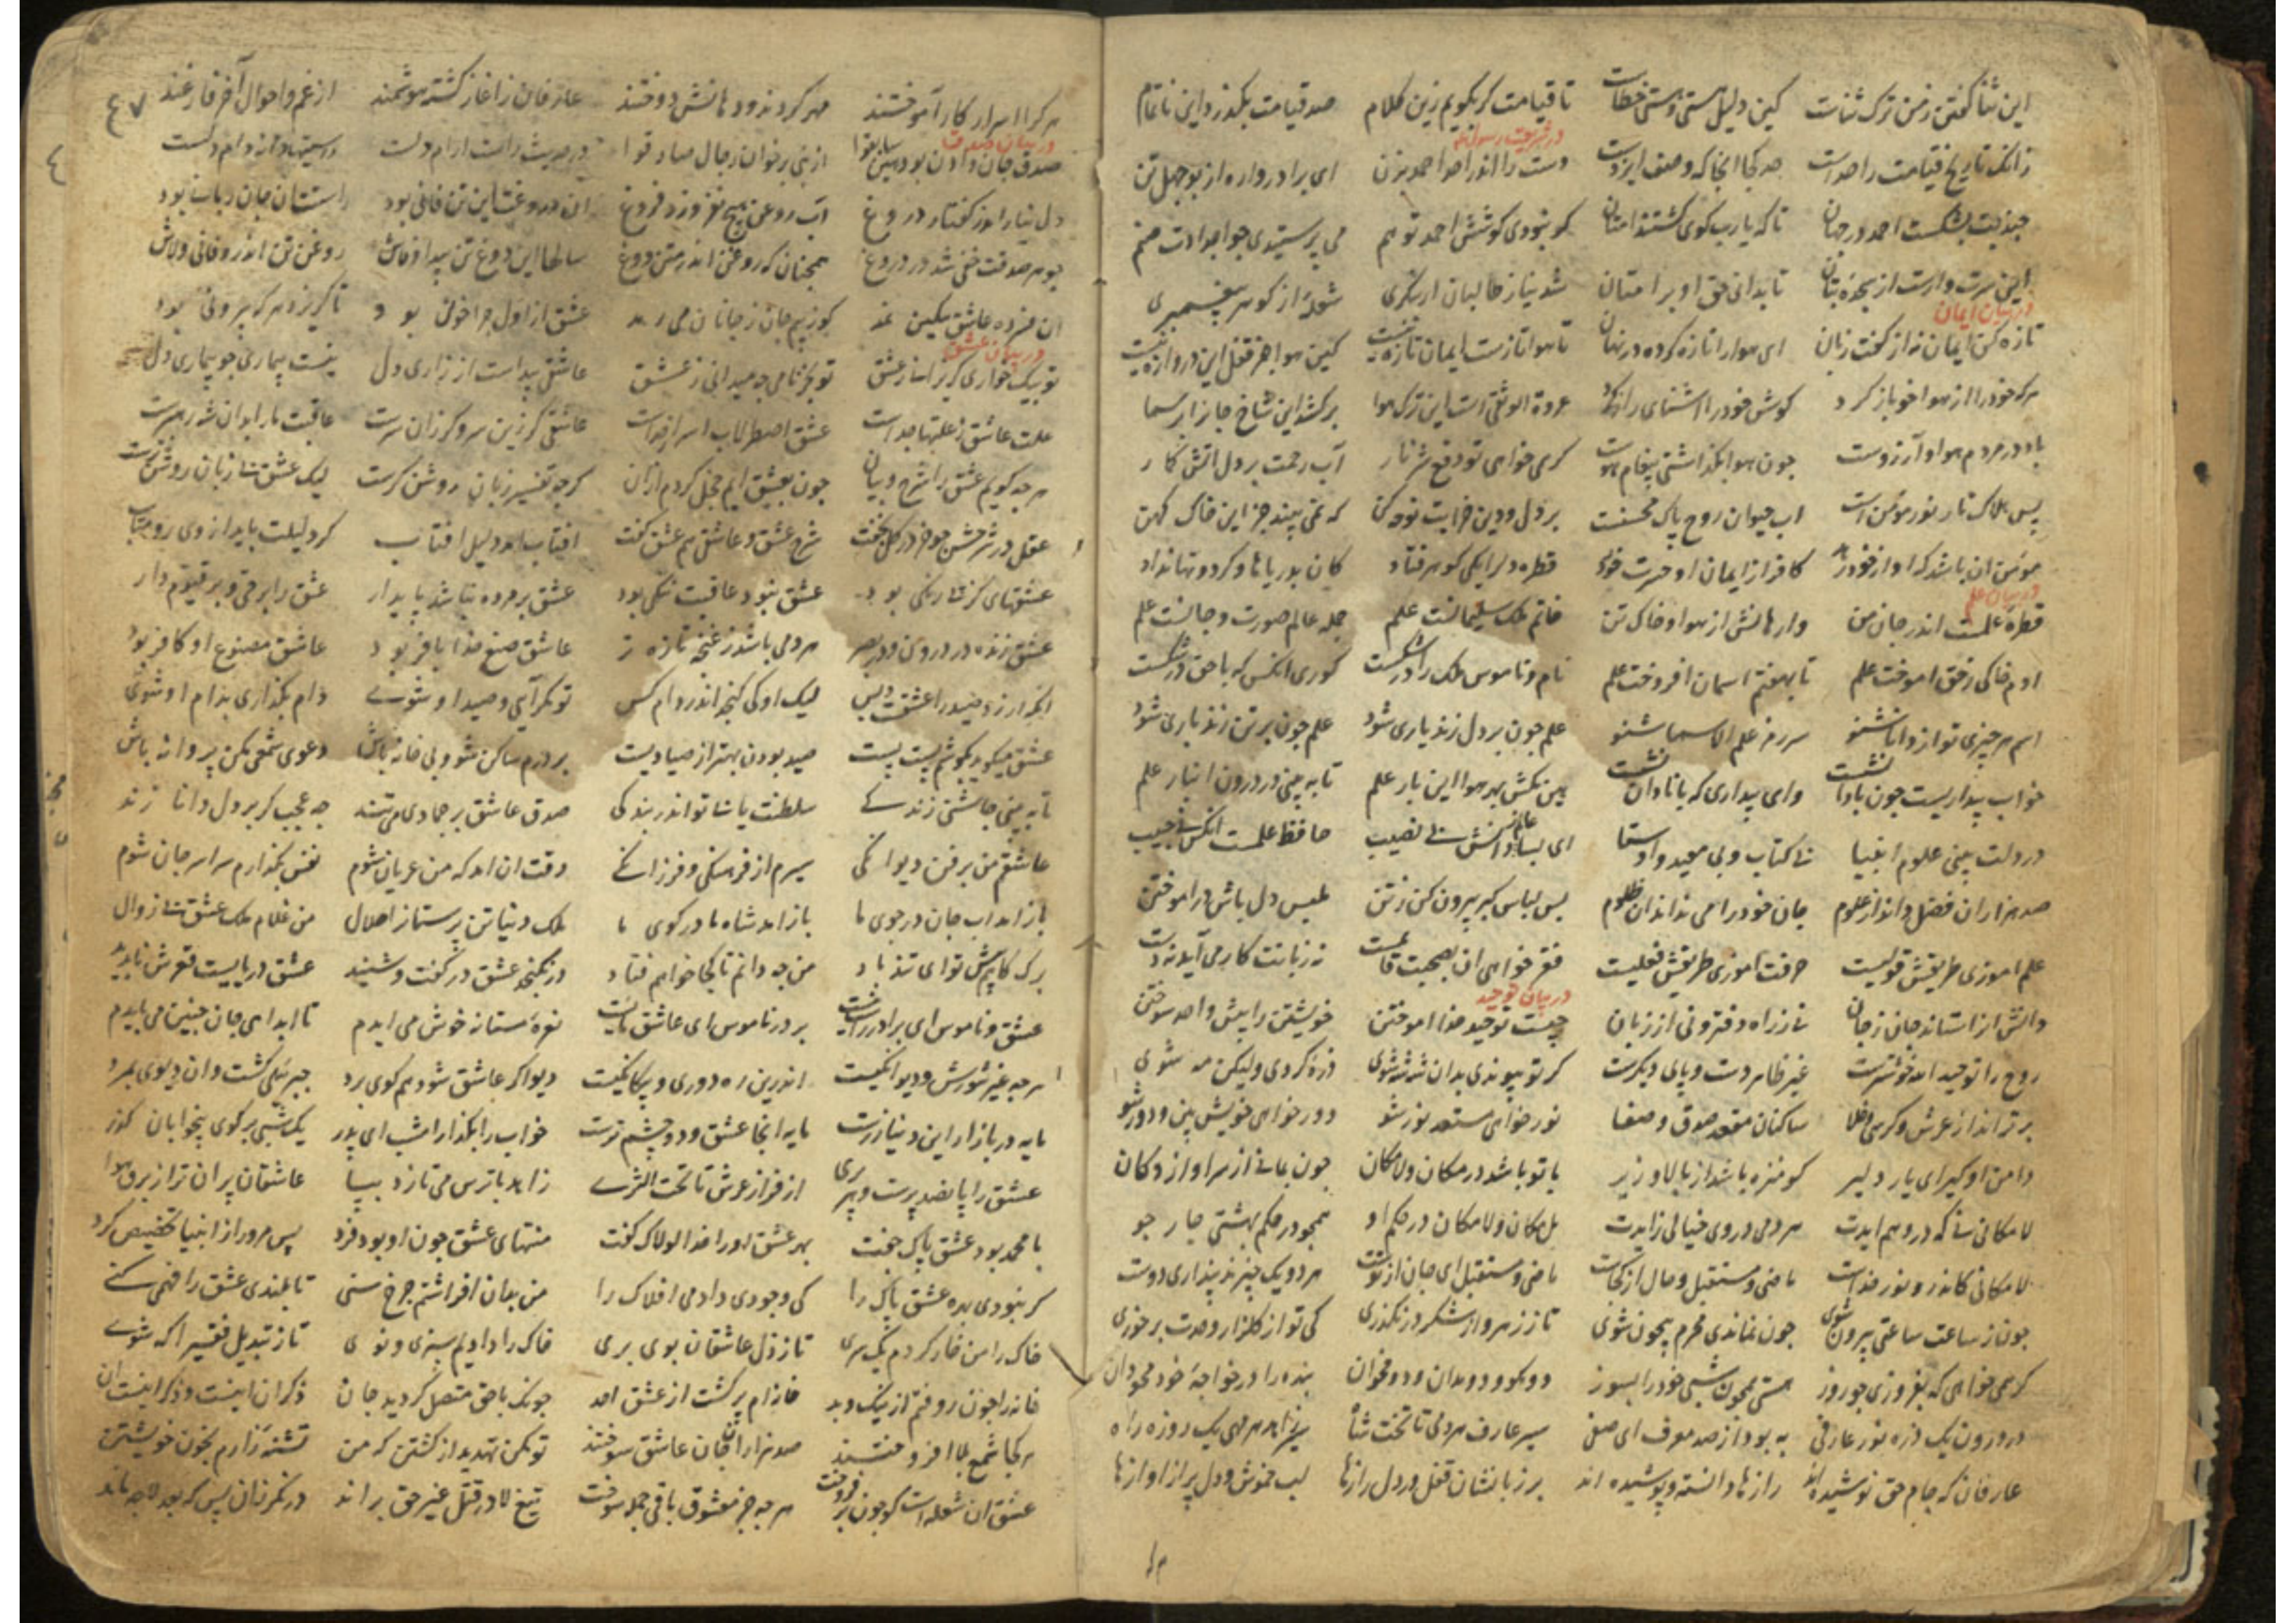 این ثنا گفتن ز من ترک ثناست کین دلیل هستی و هستی خطاست تا قیامت گر بگویم زین کلام صد قیامت بگذرد و این ناتمام
زانک تاریخ قیامت را حدست حد کجا انجا که وصف ایزدست دست را اندر احد و احمد بزن ای برادر واره از بوجهل تن
چند بت بشکست احمد در جهان تا که یارب گوی گشتند امتان گر نبودی کوشش احمد تو هم می پرستیدی چو اجدادت صنم
این سرت وارست از سجده بتان تا بدانی حق او بر امتان شد نیاز طالبان ار بنگری شعله از گوهر پیغمبری
در بیان ایمان
تازه کن ایمان نه از گفت زبان ای هوا را تازه کرده در نهان تا هوا تازست ایمان تازه نیست کین هوا جز قفل این دروازه نیست
هر که خود را از هوا خو باز کرد گوش خود را اشنای راز کرد عروة الوثقی است این ترک هوا برکشد این شاخ جانرا بر سما
باد در مردم هوا و آرزوست چون هوا بگذاشتی پیغام هوست گر همی خواهی تو دفع شر نار آب رحمت بر دل اتش گمار
پس هلاک نار نور مومن است اب حیوان روح پاک محسنست بر دل و دین خرابت نوحه کن که نمی بیند جز این خاک کهن
مومن ان باشد که او از خود رهد کافر از ایمان او حسرت خورد قطره دل را یکی گوهر فتاد کان بدریاها و گردونها نداد
در بیان علم
قطره علمست اندر جان من وارهانش از هوا و خاک تن خاتم ملک سلیمانست علم جمله عالم صورت و جانست علم
ادم خاکی ز حق اموخت علم تا بهفتم اسمان افروخت علم نام و ناموس ملک را در شکست کوری انکس که با حق در شکست
اسم هر چیزی تو از دانا شنو سر رمز علم الاسما شنو علم چون بر دل زند یاری شود علم چون بر تن زند باری شود
خواب بیداریست چون با دانشست وای بیداری که با نادان نشست هین مکش بهر هوا این بار علم تا به بینی در درون انبار علم
در دلت بینی علوم انبیا بی کتاب و بی معید و اوستا ای بسا عالم ز دانش بی نصیب حافظ علمست انکس نی حبیب
صد هزاران فضل داند از علوم جان خود را می نداند ان ظلوم پس لباس کبر بیرون کن ز تن ملبس دل باش در اموختن
علم اموزی طریقش قولیست حرفت اموزی طریقش فعلیست فقر خواهی ان بصحبت قائمست نه زبانت کار می آید نه دست
در بیان توحید
دانش انرا ستاند جان ز جان نی ز راه دفتر و نی از زبان چیست توحید خدا اموختن خویشتن را پیش واحد سوختن
روح را توحید الله خوشترست غیر ظاهر دست و پای دیگرست گر تو پیوندی بدان شه شه شوی ذره گردی ولیکن مه شوی
برترند از عرش و کرسی و خلا ساکنان مقعد صدق و صفا نور خواهی مستعد نور شو دور خواهی خویش بین و دور شو
دامن او گیر ای یار دلیر کو منزه باشد از بالا و زیر با تو باشد در مکان و لامکان چون بمانی از سرا و از دکان
لامکانی نی که در وهم ایدت هر دمی در وی خیالی زایدت بل مکان و لامکان در حکم او همچو در حکم بهشتی چار جو
لامکانی کاندرو نور خداست ماضی و مستقبل و حال از کجاست ماضی و مستقبل ای جان از توست هر دو یک چیزند پنداری دوست
چون ز ساعت ساعتی بیرون شوی چون نماندی محرم بیچون شوی تا ز زهر و از شکر در نگذری کی تو از گلزار وحدت بر خوری
گر همی خواهی که بفروزی چو روز هستی همچون شب خود را بسوز دو مگو و دو مدان و دو مخوان بنده را در خواجه خود محو دان
در درون یک ذره نور عارفی به بود از صد معرف ای صفی سیر عارف هر دمی تا تخت شاه سیر زاهد هر مهی یک روزه راه
عارفان که جام حق نوشیده اند رازها دانسته و پوشیده اند بر زبانشان قفل و در دل رازها لب خموش و دل پر از اوازها
٤٧
هر کرا اسرار کار آموختند مهر کردند و دهانش دوختند عارفان ز اغاز گشته هوشمند از غم و احوال آخر فارغند
در بیان صدق
صدق جان دادن بود هین سابقوا از نبی برخوان رجال صادقوا در حدیث راست ارام دلست راستیها دانه دام دلست
دل نیارامد ز گفتار دروغ آب روغن هیچ نفروزد فروغ ان دروغت این تن فانی بود راستت ان جان ربانی بود
جوهر صدقت خفی شد در دروغ همچنان که روغن اندر متن دوغ سالها این دوغ تن پیدا و فاش روغن تن اندرو فانی ولاش
ان فسرده عاشق مسکین نمد کوز بیم جان ز جانان می رمد عشق از اول چرا خونی بود تا گریزد هر که بیرونی بود
در بیان عشق
تو بیک خواری گریزانی ز عشق تو بجز نامی چه میدانی ز عشق عاشقی پیداست از زاری دل نیست بیماری چو بیماری دل
علت عاشق ز علتها جداست عشق اصطرلاب اسرار خداست عاشقی گر زین سر و گر زان سرست عاقبت ما را بدان شه رهبرست
هر چه گویم عشق را شرح و بیان چون بعشق ایم خجل گردم ازان گرچه تفسیر زبان روشن گرست لیک عشق بی زبان روشن ترست
عقل در شرحش چو خر در گل بخفت شرح عشق و عاشقی هم عشق گفت افتاب امد دلیل افتاب گر دلیلت باید از وی رو متاب
عشقهای کز پی رنگی بود عشق نبود عاقبت ننگی بود عشق بر مرده نباشد پایدار عشق را بر حی و بر قیوم دار
عشق زنده در روان و در بصر هر دمی باشد ز غنچه تازه تر عاشق صنع خدا با فر بود عاشق مصنوع او کافر بود
انکه ارزد صید را عشقست و بس لیک او کی گنجد اندر دام کس تو مگر آیی و صید او شوی دام بگذاری بدام او شوی
عشق میگوید بگوشم پست پست صید بودن بهتر از صیادیست بر درم ساکن شو و بی خانه باش دعوی شمعی مکن پروانه باش
تا به بینی چاشنی زندگی سلطنت یابی تو اندر بندگی صدق عاشق بر جمادی می تند چه عجب گر بر دل دانا زند
عاشقم من بر فن دیوانگی سیرم از فرهنگی و فرزانگی وقت ان امد که من عریان شوم نقش بگذارم سراسر جان شوم
باز امد اب جان در جوی ما باز امد شاه ما در کوی ما ملک دنیا تن پرستانرا حلال من غلام ملک عشق بی زوال
برگ کاهم پیش تو ای تند باد من چه دانم تا کجا خواهم فتاد در نگنجد عشق در گفت و شنید عشق دریاییست قعرش ناپدید
عشق و ناموس ای برادر راست نیست بر در ناموس ای عاشق مایست نعره مستانه خوش می ایدم تا ابد ای جان چنین می بایدم
هر چه غیر شورش و دیوانگیست اندرین ره دوری و بیگانگیست دیو اگر عاشق شود هم گوی برد جبرئیلی گشت و ان دیوی بمرد
مایه در بازار این دنیا زرست مایه انجا عشق و دو چشم ترست خواب را بگذار امشب ای پدر یک شبی بر کوی بیخوابان گذر
عشق را پانصد پرست و هر پری از فراز عرش تا تحت الثری زاهد باترس می تازد بپا عاشقان پران تر از برق و هوا
با محمد بود عشق پاک جفت بهر عشق او را خدا لولاک گفت منتهای عشق چون او بود فرد پس مرورا ز انبیا تخصیص کرد
گر نبودی بهر عشق پاک را کی وجودی دادمی افلاک را من بدان افراشتم چرخ سنی تا بلندی عشق را فهمی کنی
خاک را من خار کردم یک سری تا ز ذل عاشقان بوی بری خاک را دادیم سبزی و نوی تا ز تبدیل فقیر اگه شوی
خانه را چون روفتم از نیک و بد خانه ام پر گشت از عشق احد چونک با حق متصل گردید جان ذکر ان اینست و ذکر اینست ان
هر کجا شمع بلا افروختند صد هزاران جان عاشق سوختند تو مکن تهدید از کشتن که من تشنه زارم بخون خویشتن
عشق ان شعله است کو چون بر فروخت هر چه جز معشوق باقی جمله سوخت تیغ لا در قتل غیر حق براند در نگر زان پس که بعد لا چه ماند